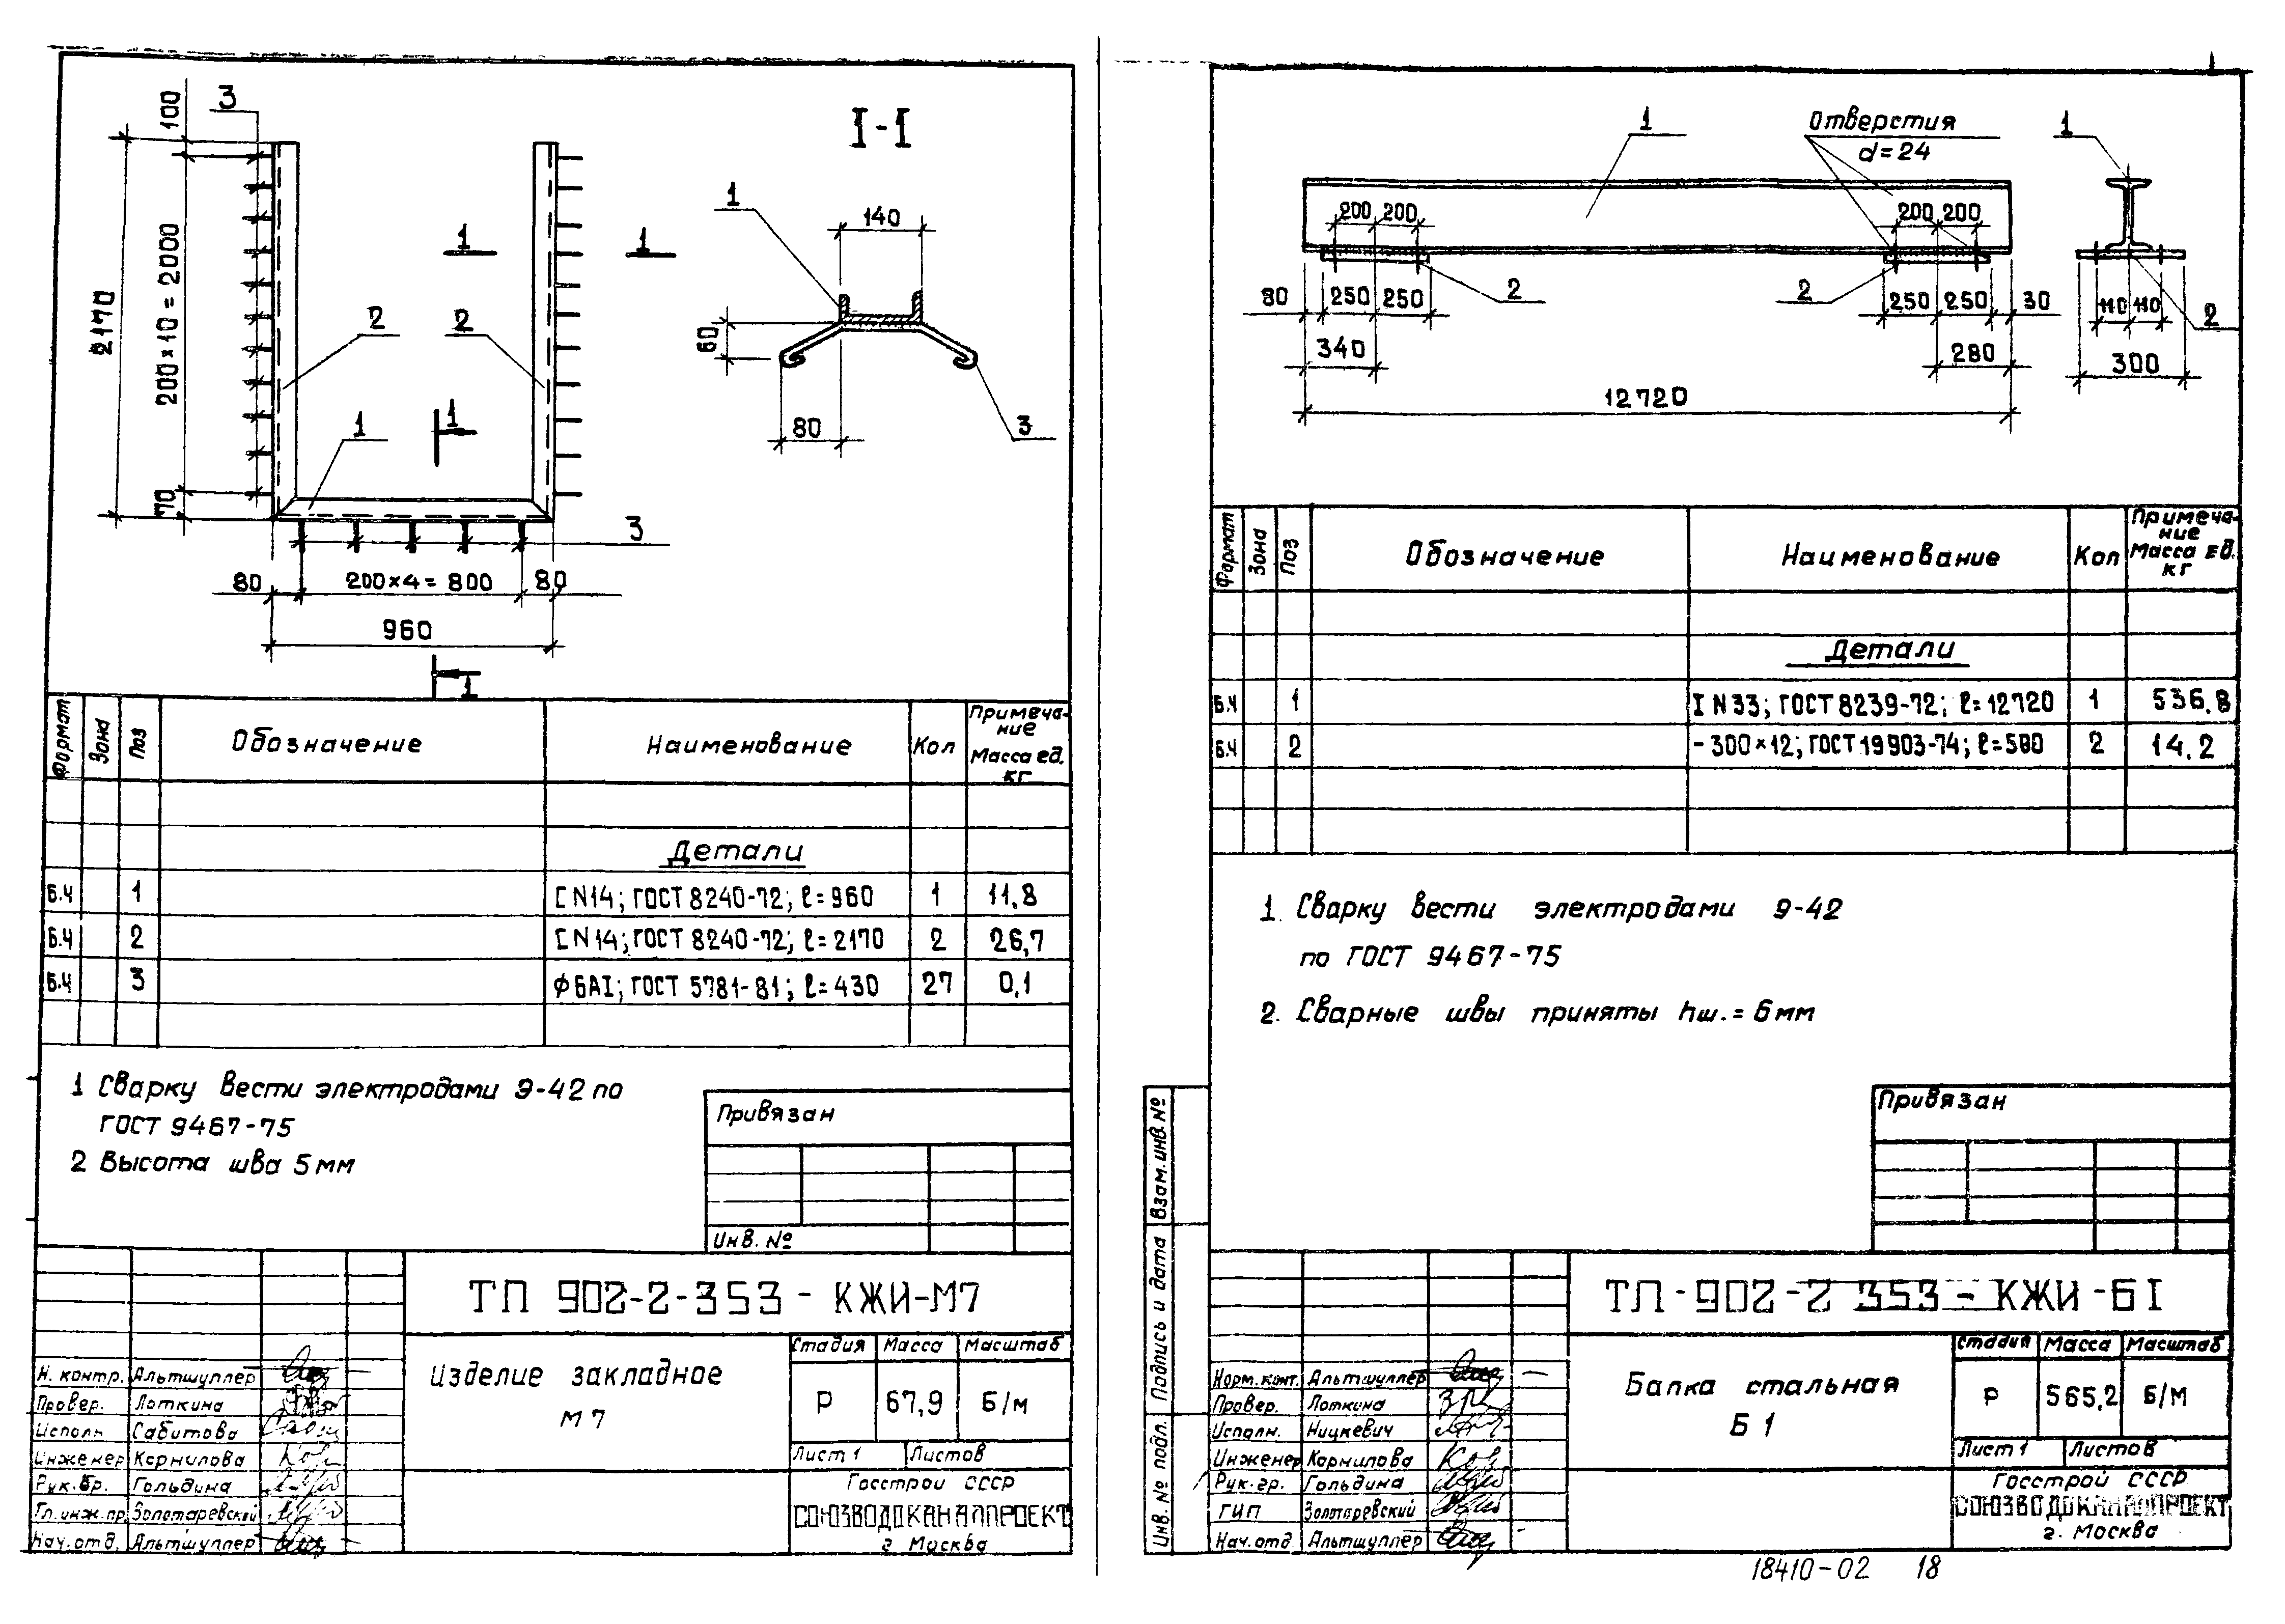 3
100
2170
200×10=2000
70
1
1
2
2
1
1
3
80
200×4=800
80
960
1
I-I
1
140
60
80
3
Формат
Зона
Поз
Обозначение
Наименование
Кол
Примеча-
ние
Масса ед.
кг
Детали
Б.Ч 1 [ N14; ГОСТ 8240-72; ℓ=960 1 11,8
Б.Ч 2 [ N14; ГОСТ 8240-72; ℓ=2170 2 26,7
Б.Ч 3 ф6АI; ГОСТ 5781-81; ℓ=430 27 0,1
1 Сварку вести электродами Э-42 по
ГОСТ 9467-75
2 Высота шва 5мм
Привязан
Инв. №
ТП 902-2-353-КЖИ-М7
Изделие закладное
М7
Стадия Масса Масштаб
Р 67,9 Б/м
Лист 1 Листов
Госстрой СССР
СОЮЗВОДОКАНАЛПРОЕКТ
г. Москва
Н. контр. Альтшуллер
Провер. Лоткина
Исполн Сабитова
Инженер Корнилова
Рук. бр. Гольдина
Гл. инж. пр. Золотаревский
Нач. отд. Альтшуллер
1
Отверстия
d=24
1
200 200
200 200
80 250 250
2
2
250 250 30
340
280
12720
110 110
2
300
Формат
Зона
Поз
Обозначение
Наименование
Кол
Примеча-
ние
Масса ед.
кг
Детали
Б.Ч 1 I N33; ГОСТ 8239-72; ℓ=12720 1 536,8
Б.Ч 2 -300×12; ГОСТ 19903-74; ℓ=500 2 14,2
1. Сварку вести электродами Э-42
по ГОСТ 9467-75
2. Сварные швы приняты hш.=6мм
Привязан
Взам. инв. №
Подпись и дата
Инв. № подл.
ТП-902-2 353-КЖИ-Б1
Балка стальная
Б 1
Стадия Масса Масштаб
Р 565,2 Б/М
Лист 1 Листов
Госстрой СССР
СОЮЗВОДОКАНАЛПРОЕКТ
г. Москва
Норм. конт. Альтшуллер
Провер. Лоткина
Исполн. Ницкевич
Инженер Корнилова
Рук. гр. Гольдина
ГИП Золотаревский
Нач. отд Альтшуллер
18410-02 18